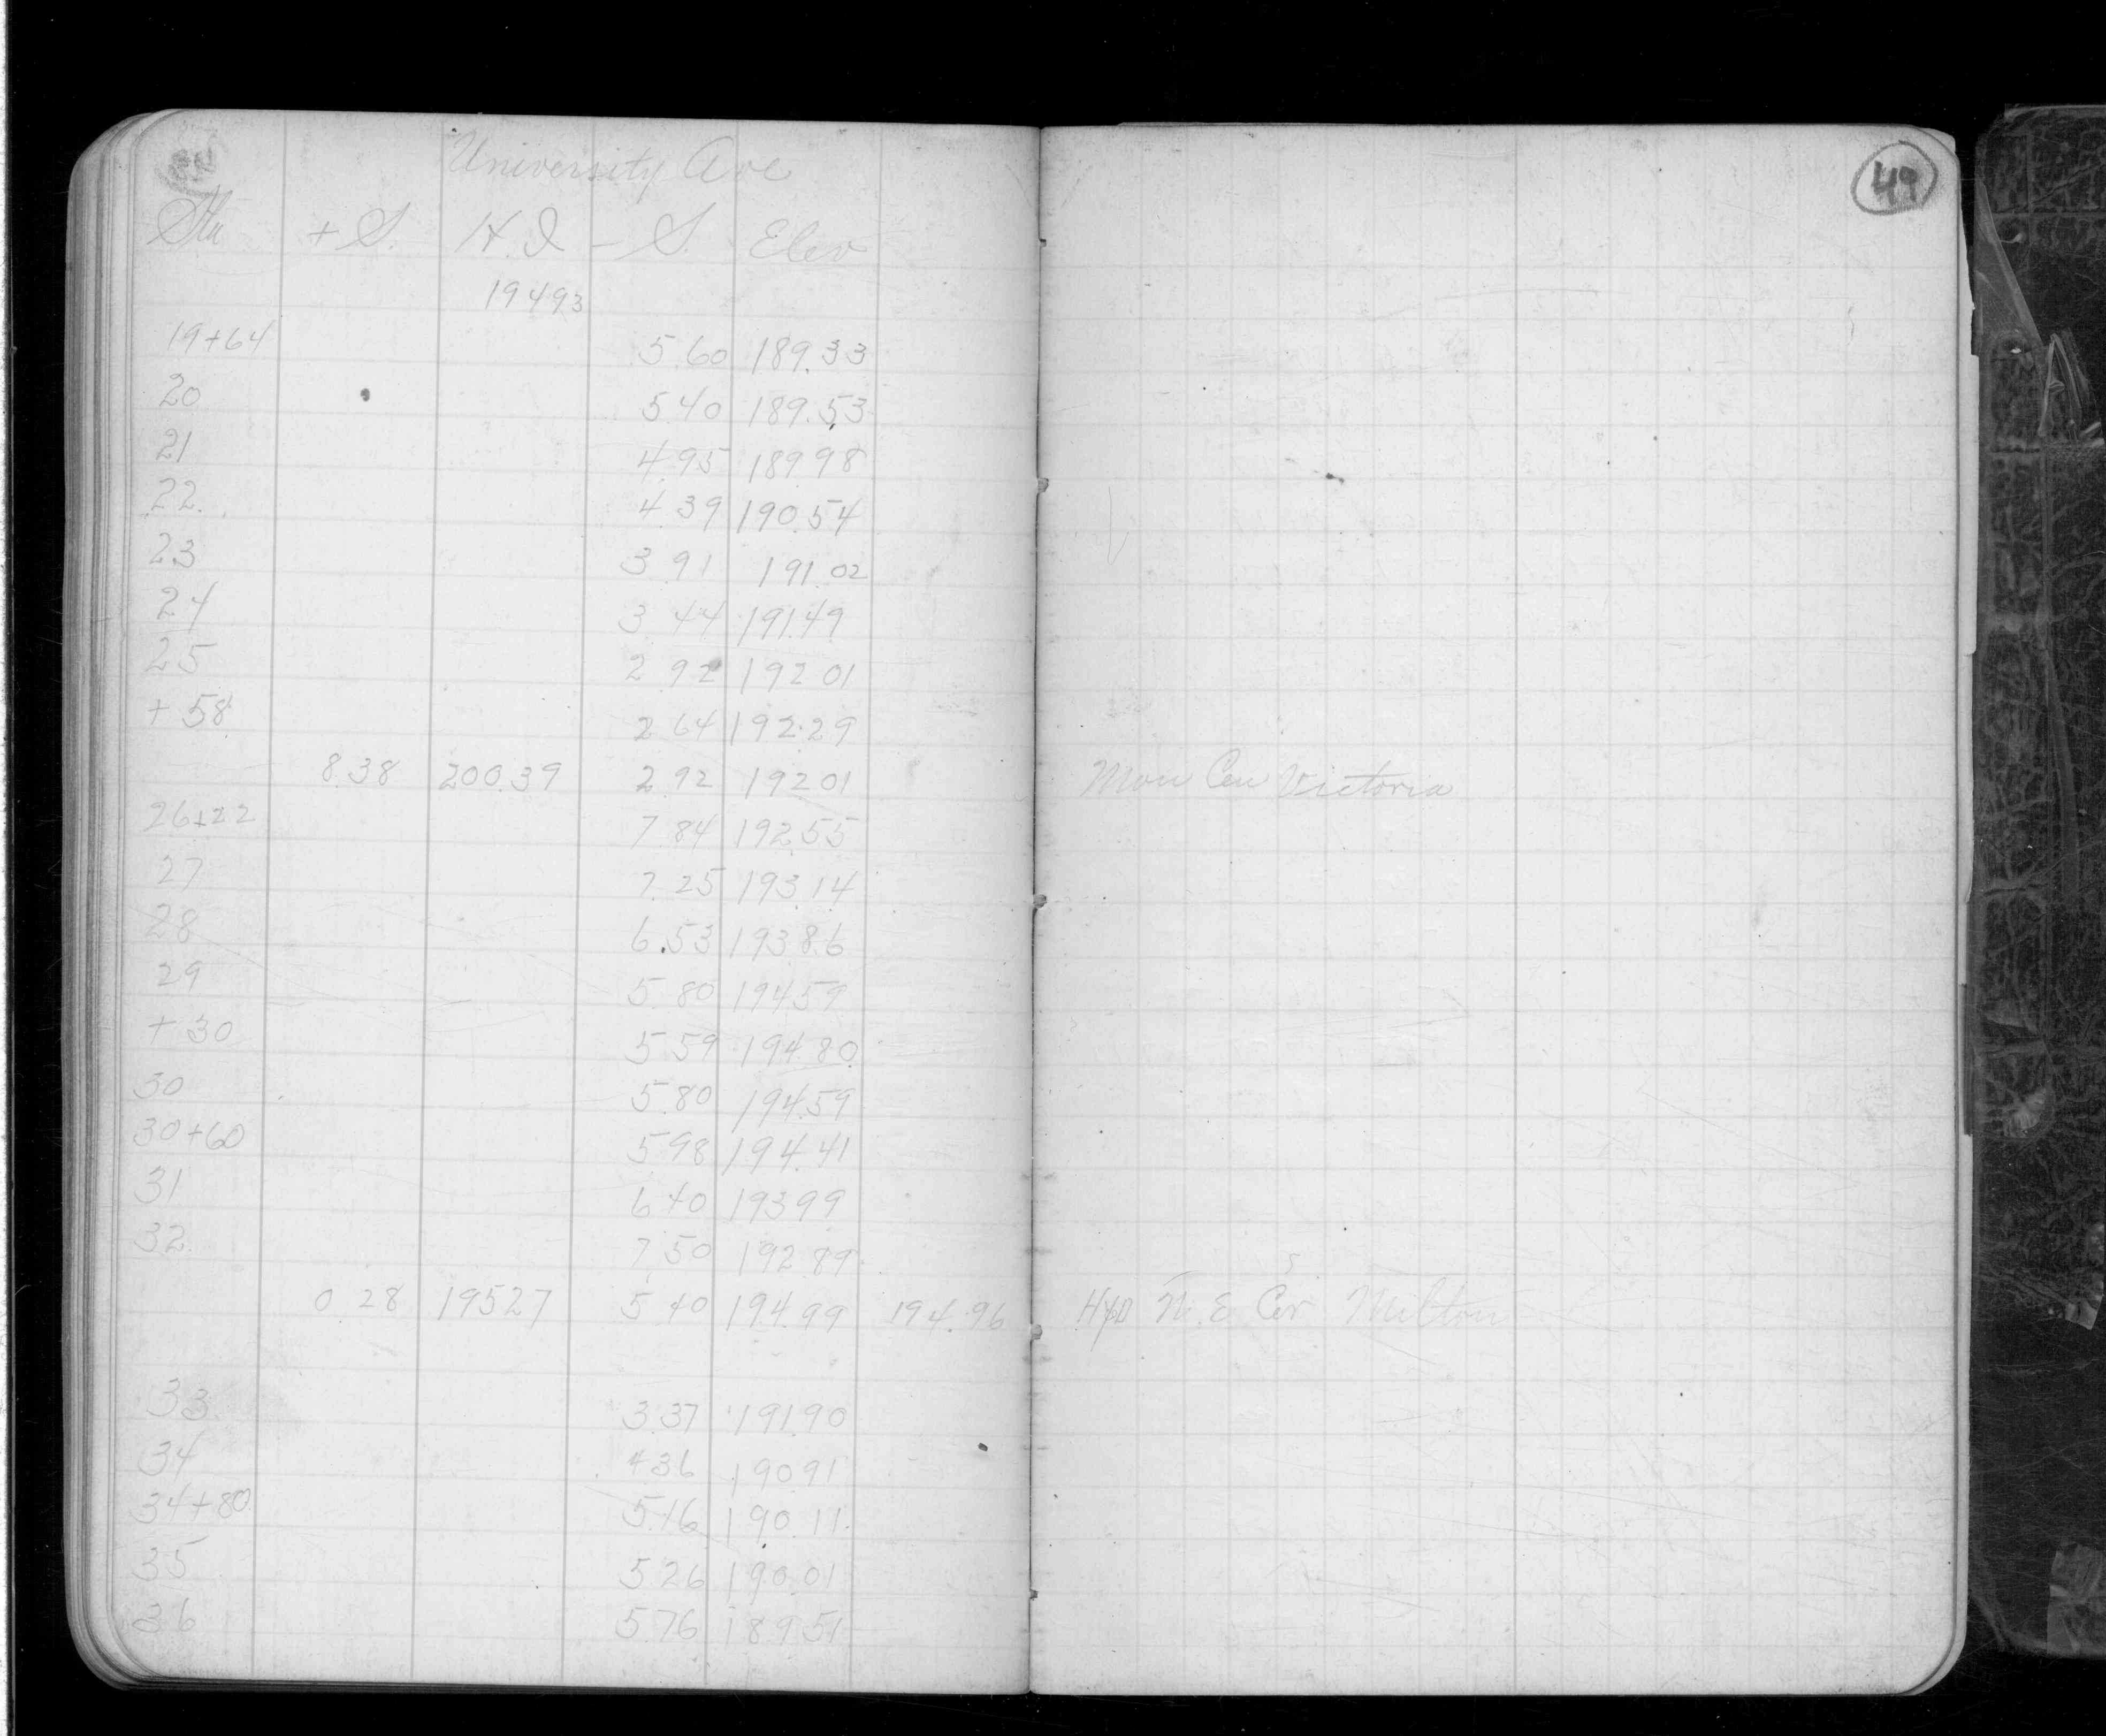 49
University Ave
Sta + S. H.I - S. Elev
194 93
19+64 5.60 189.33
20 5.40 189.53
21 4.95 189 98
22 4.39 190.54
23 3.91 191.02
24 3.44 191.49
25 2.92 192 01
+ 58 2.64 192.29
8.38 200.39 2.92 192 01 Mon Cen Victoria
26+22 7.84 192.55
27 7.25 193.14
28 6.53 193.86
29 5.80 194.59
+ 30 5.59 194.80
30 5.80 194.59
30+60 5.98 194.41
31 6.40 193 99
32 7.50 192.89
0.28 195 27 5.40 194.99 194.96 Hyd N.E Cor Milton
33 3.37 191.90
34 4 36 190 91
34+80 5.16 190.11
35 5.26 190.01
36 5.76 189.51